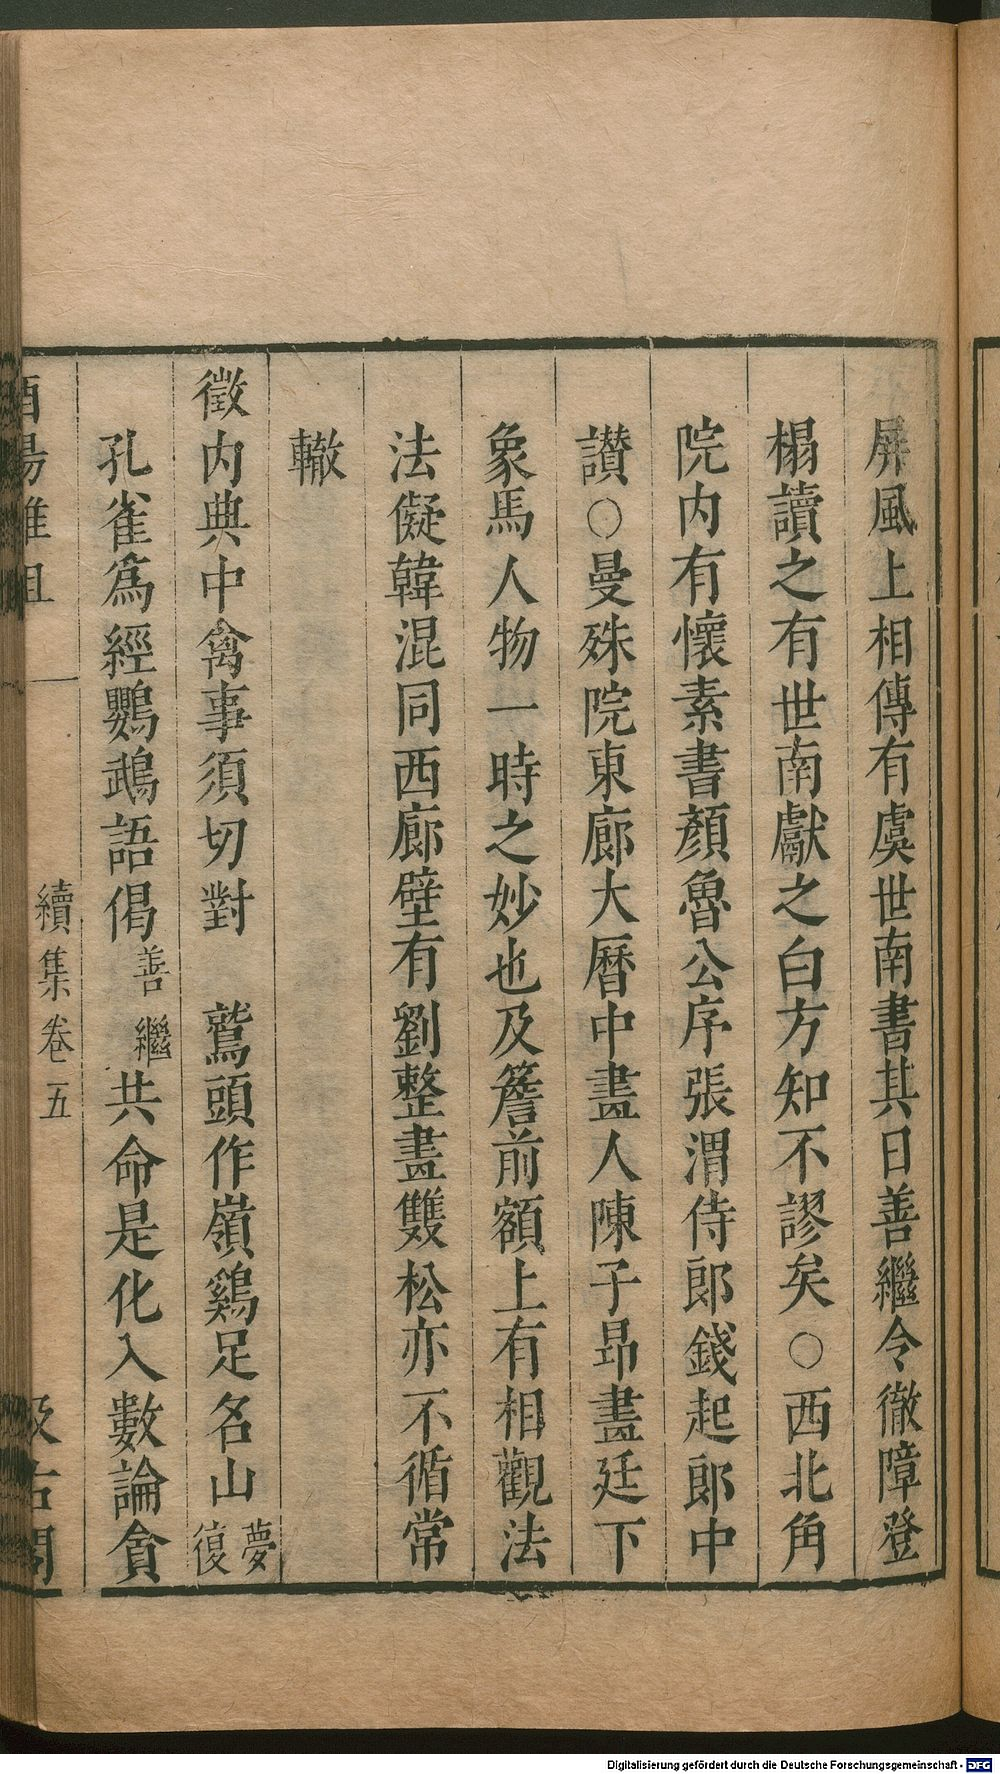 屏風上相傳有虞世南書其日善繼令徹障登
榻讀之有世南獻之白方知不謬矣○西北角
院内有懷素書顏魯公序張渭侍郎錢起郎中
讃○曼殊院東廊大曆中畫人陳子昻畫廷下
象馬人物一時之妙也及簷前額上有相觀法
法儗韓混同西廊壁有劉整畫雙松亦不循常
轍
徵内典中禽事須切對　鷲頭作嶺鷄足名山夢復
孔雀爲經鸚鵡語偈善繼共命是化入數論貪
酉陽雜俎　續集卷五　汲古閣
Digitalisierung gefördert durch die Deutsche Forschungsgemeinschaft - DFG